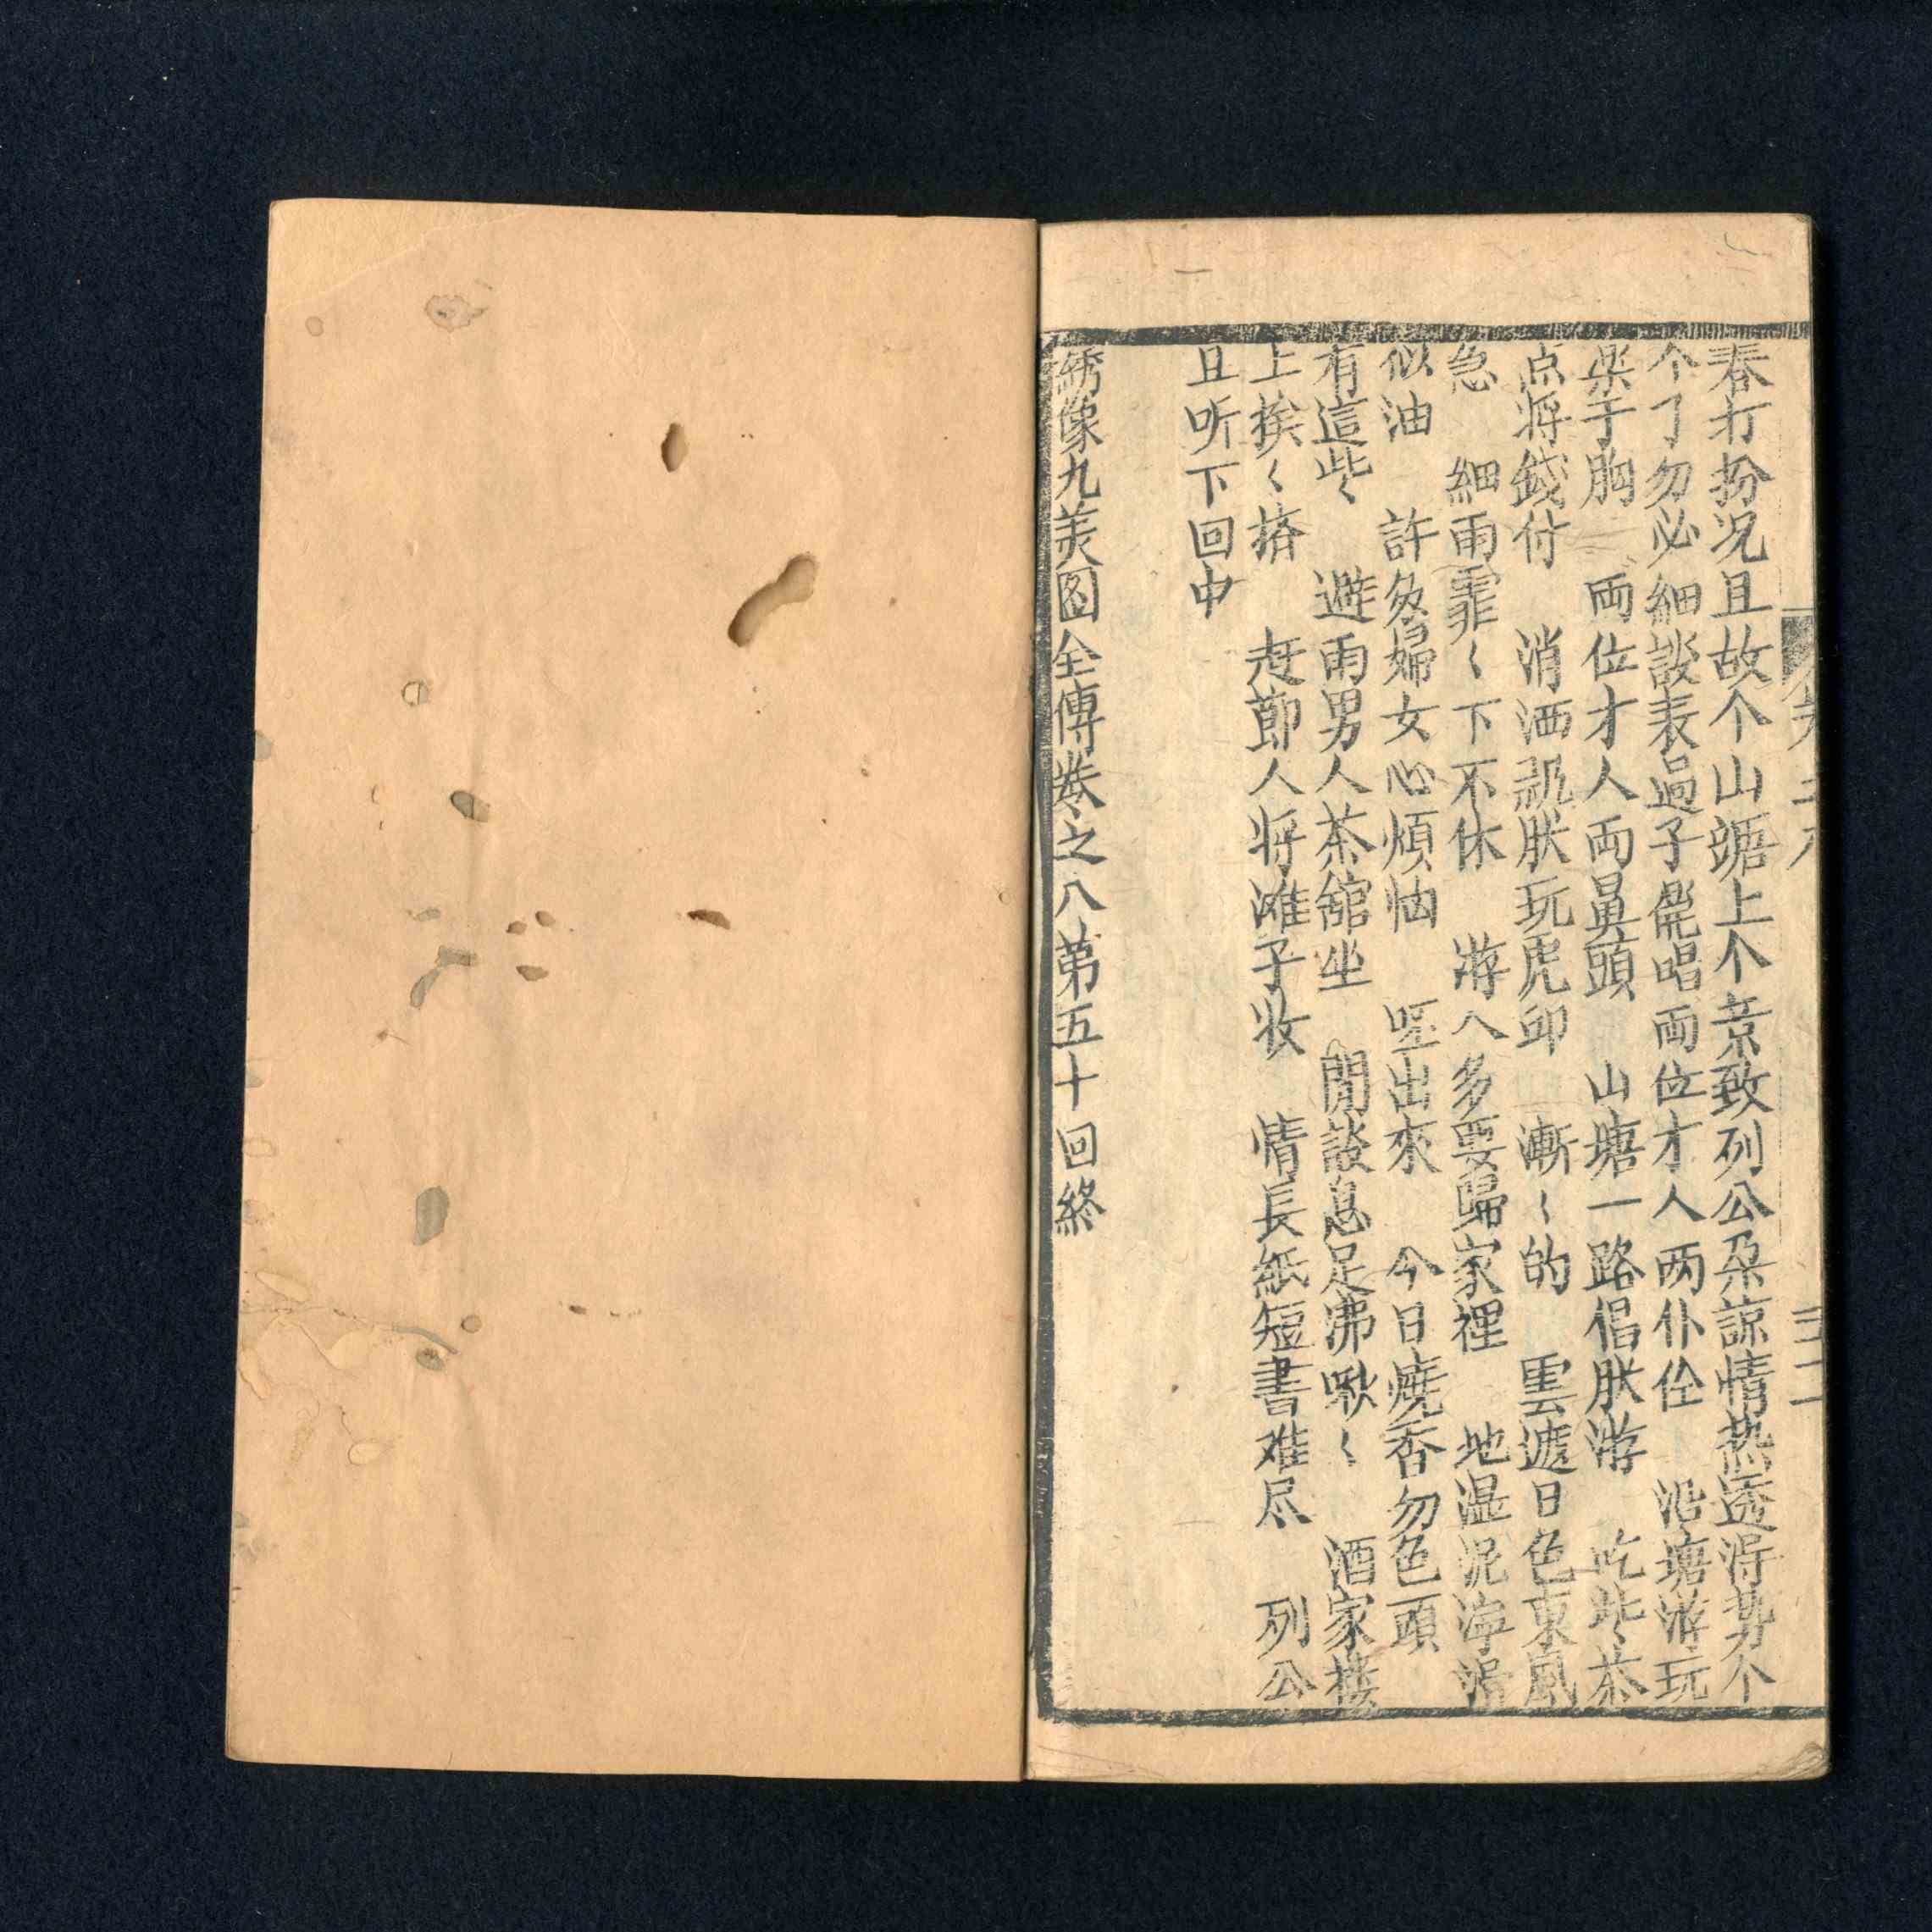 春打扮况且故个山塘上个景致列公朶諒情热透淂势个
个了勿必細談表過子罷唱両位才人两仆佺　沿塘游玩
樂于胸　両位才人両鼻頭　山塘一路倡肰游　吃些茶
点将錢付　消洒肰玩虎印　漸〻的　雲遮日色東風
急　細雨霏〻下不休　游人多要歸家裡　地湿泥濘滑
似油　許多婦女心煩恼　呸出來　今日燒香勿色頭
有這些　避雨男人茶舘坐　閒談息足沸啾〻　酒家楼
上挨〻擠　赶節人将滩子收　情長紙短書难尽　列公
且听下回中
綉像九美图全傳卷之八第五十回終